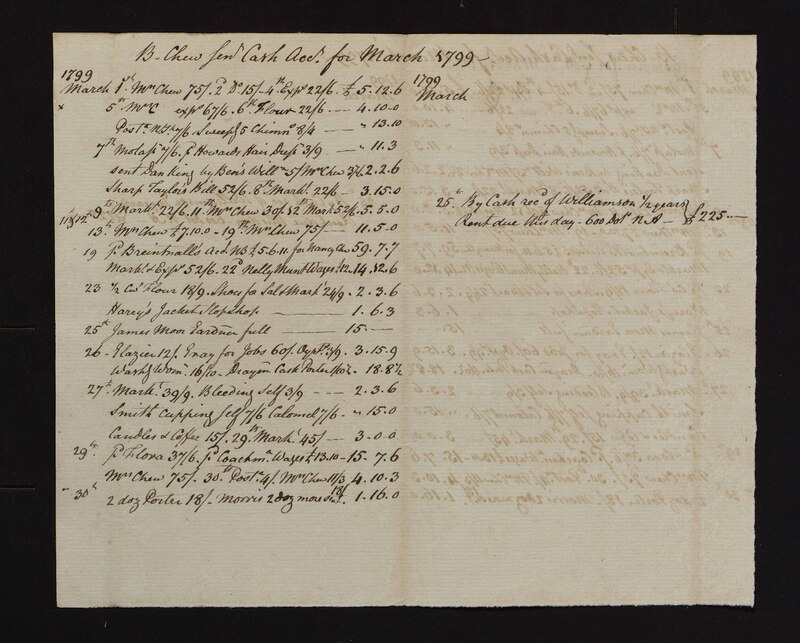 B. Chew Senr. Cash Acct. for March 1799
1799
March 1st Mrs Chew 75/. 2d Do 15/- 4th Exps 22/6 £ 5.12.6
x 5th Mrs C exps 67/6. 6th Flour 22/6 — 4.10.0
Posts. 7/6 Sweepg 5 Chimns 8/4 — " 13.10
7th Molass 7/6. pd Howards Hair Dress 3/9 — " 11.3
sent Dan King by Ben's Willm 5/ Mrs Chew 37/6 2.2.6
Sharp Taylor's Bill 52/6. 8th Markt 22/6 — 3.15.0
9th Markt 22/6. 11th Mrs Chew 30/. 12th Markt 52/6. 5.5.0
13th Mrs Chew £7.10.0 - 19th Mrs Chew 75/ — 11.5.0
19 pd Breintnall's Acct. for Nancy Chew 59.7.7
Markt & Exps 52/6. 22d Nelly Hunt Wages £12. 14.12.6
23 1/2 Ct Flour 18/9. Shoes for Sal & Markt 24/9. 2.3.6
Harry's Jacket Slopshop — 1.6.3
25th James Moor Gardner full — 15.—
26 - Glazier 12/. Gray for Jobs 60/. Oysts 3/9. 3.15.9
Washg Wom. 16/10. Draym Cask Porter 1/10½ - 18.8½
27th Markt. 39/9. Bleeding Self 3/9 --- 2.3.6
Smith Cupping self 7/6 Calomel 7/6 - " 15.0
Candles & Coffee 15/. 29th Markt 45/ — 3.0.0
29th pd Flora 37/6. pd Coachmn Wages £13.10 - 15.7.6
Mrs Chew 75/. 30th Posts. 4/. Mrs Chew 11/3 4.10.3
30th 2 doz Porter 18/. Morris 2 doz more 18/. 1.16.0
1799
March
25th By Cash recd of Williamson ½ years
Rent due this day - 600 Dols N.A — } £225.—